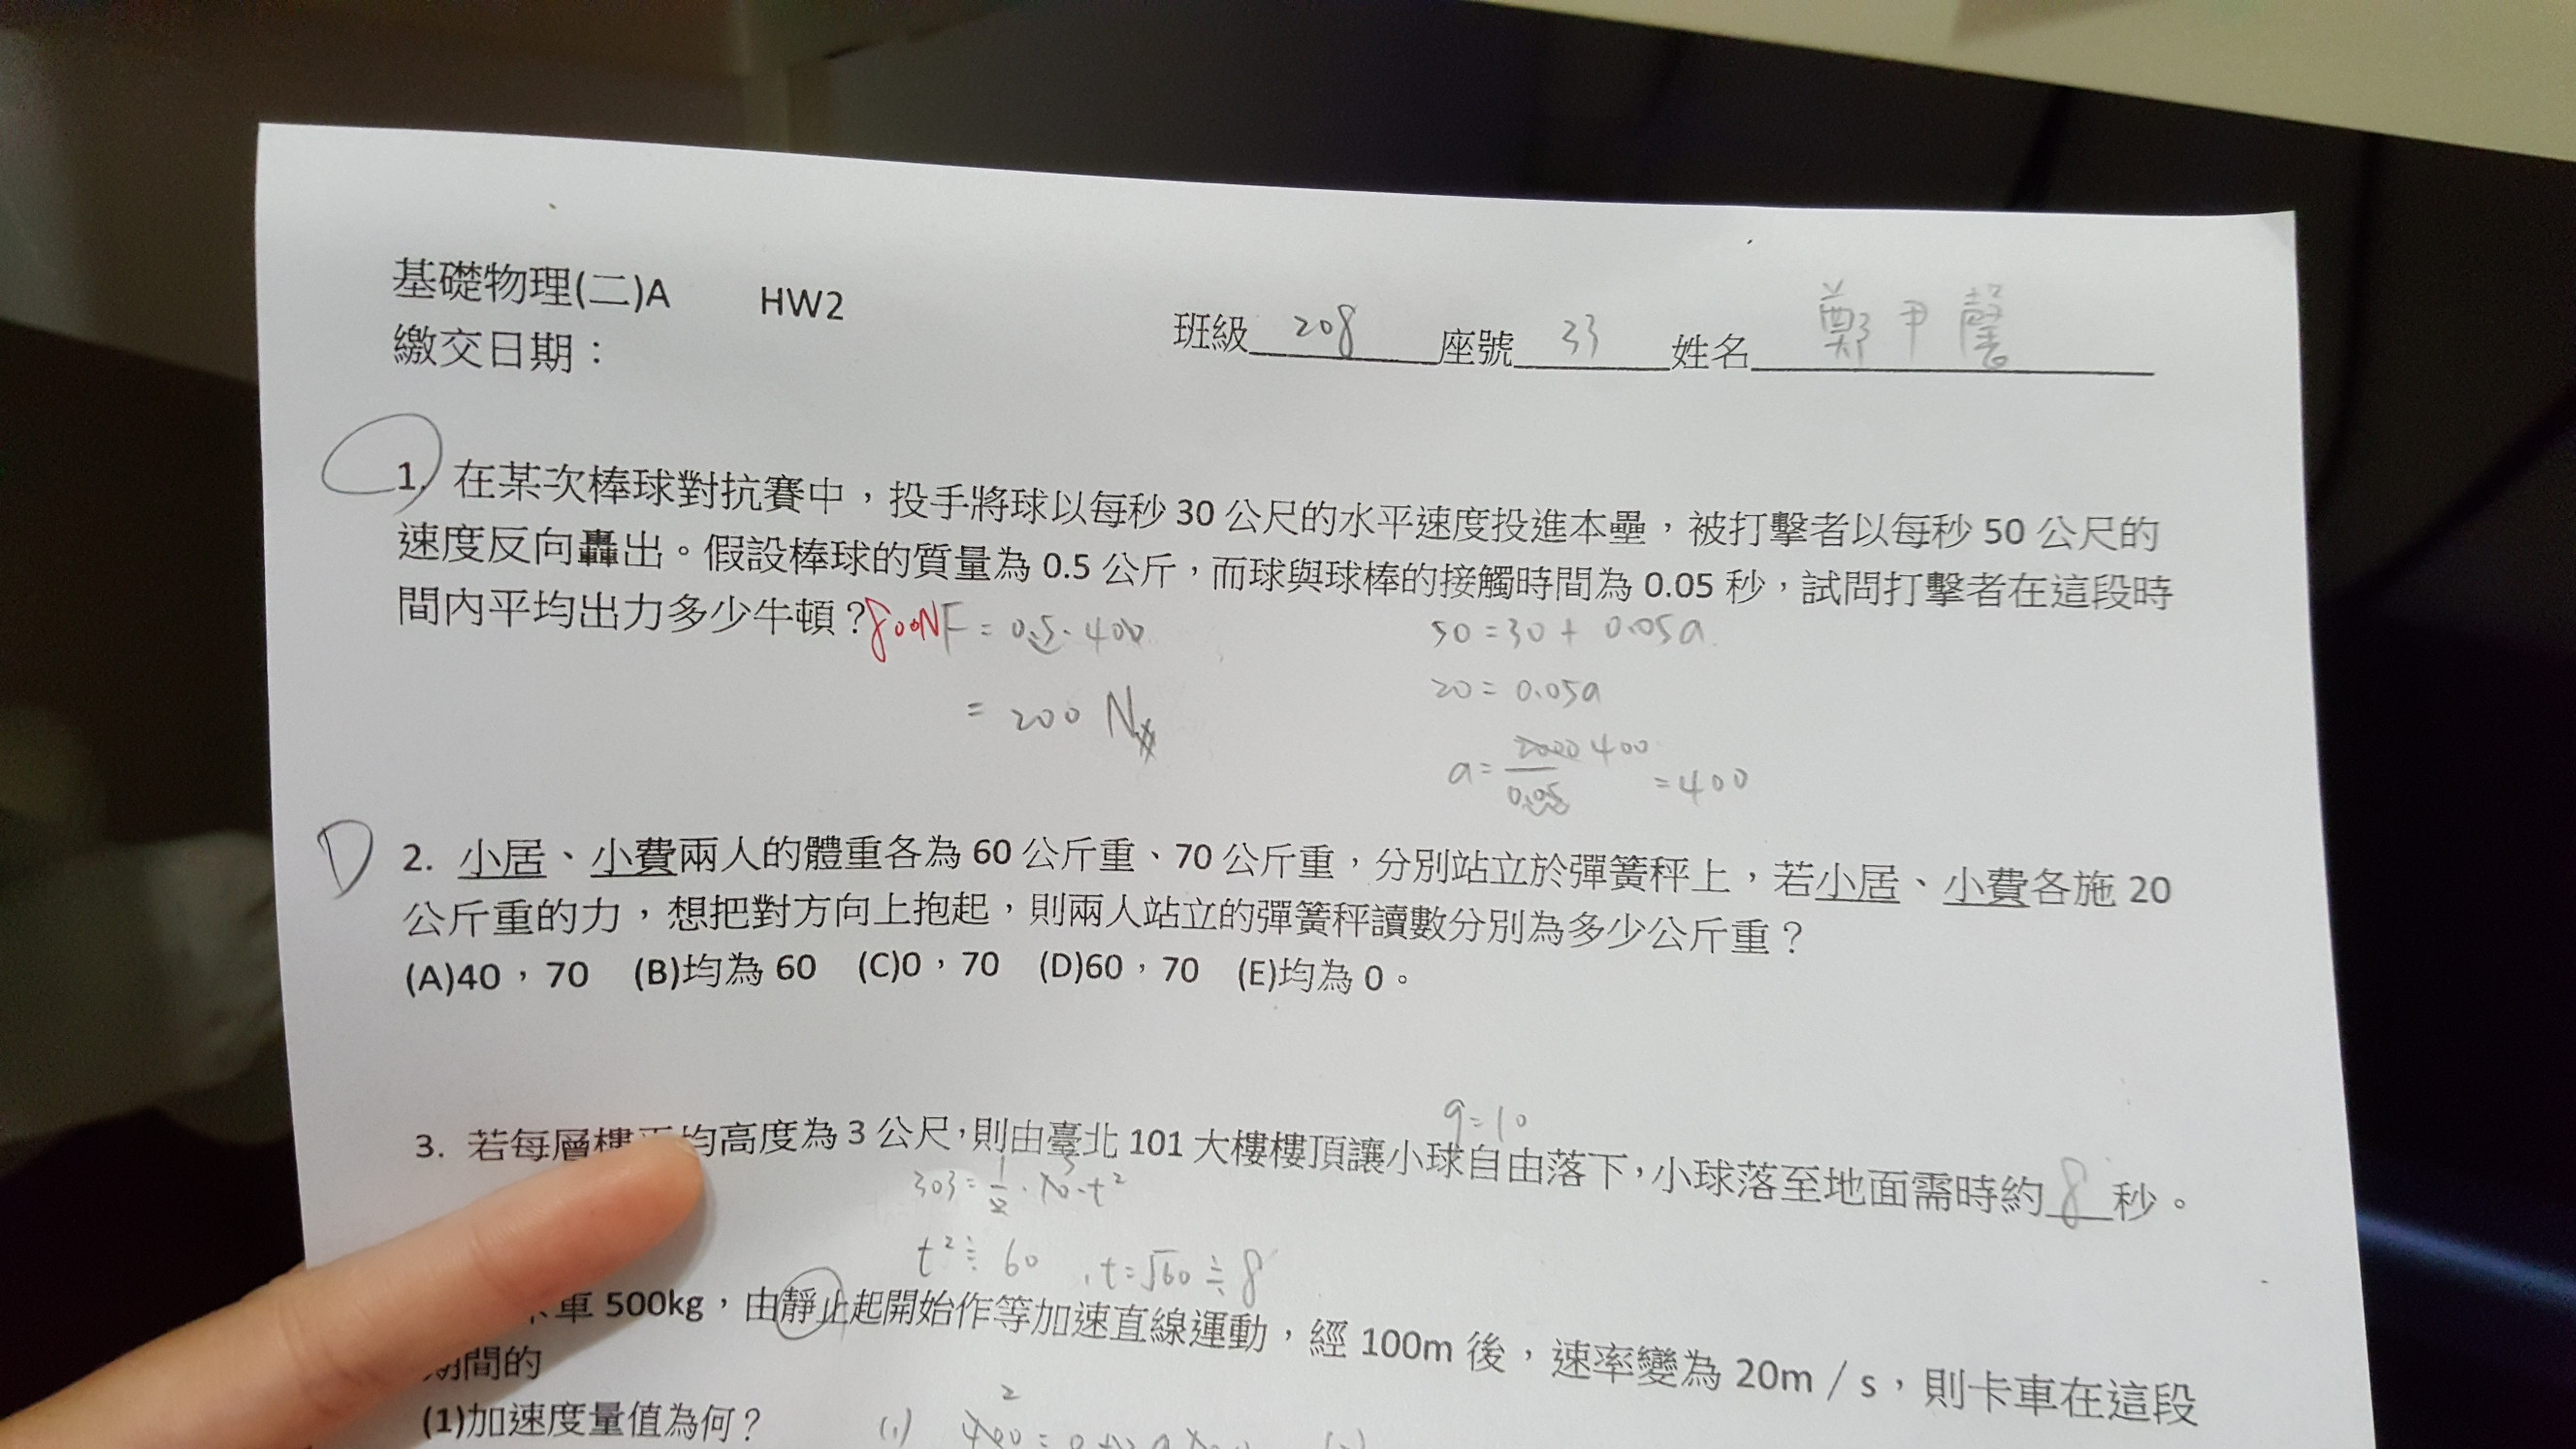 基礎物理(二)A HW2
繳交日期：
班級 208 座號 33 姓名 鄭尹馨
1. 在某次棒球對抗賽中，投手將球以每秒 30 公尺的水平速度投進本壘，被打擊者以每秒 50 公尺的
速度反向轟出。假設棒球的質量為 0.5 公斤，而球與球棒的接觸時間為 0.05 秒，試問打擊者在這段時
間內平均出力多少牛頓？800N F = 0.5·400
= 200 N
50 = 30 + 0.05a
20 = 0.05a
a = 400 / 0.05 = 400
D 2. 小居、小費兩人的體重各為 60 公斤重、70 公斤重，分別站立於彈簧秤上，若小居、小費各施 20
公斤重的力，想把對方向上抱起，則兩人站立的彈簧秤讀數分別為多少公斤重？
(A)40，70 (B)均為 60 (C)0，70 (D)60，70 (E)均為 0。
g=10
3. 若每層樓平均高度為 3 公尺，則由臺北 101 大樓樓頂讓小球自由落下，小球落至地面需時約 8 秒。
303 = 1/2 · 10 · t²
t² ≒ 60 , t = √60 ≒ 8
車 500kg，由靜止起開始作等加速直線運動，經 100m 後，速率變為 20m / s，則卡車在這段
期間的
(1)加速度量值為何？ (1)